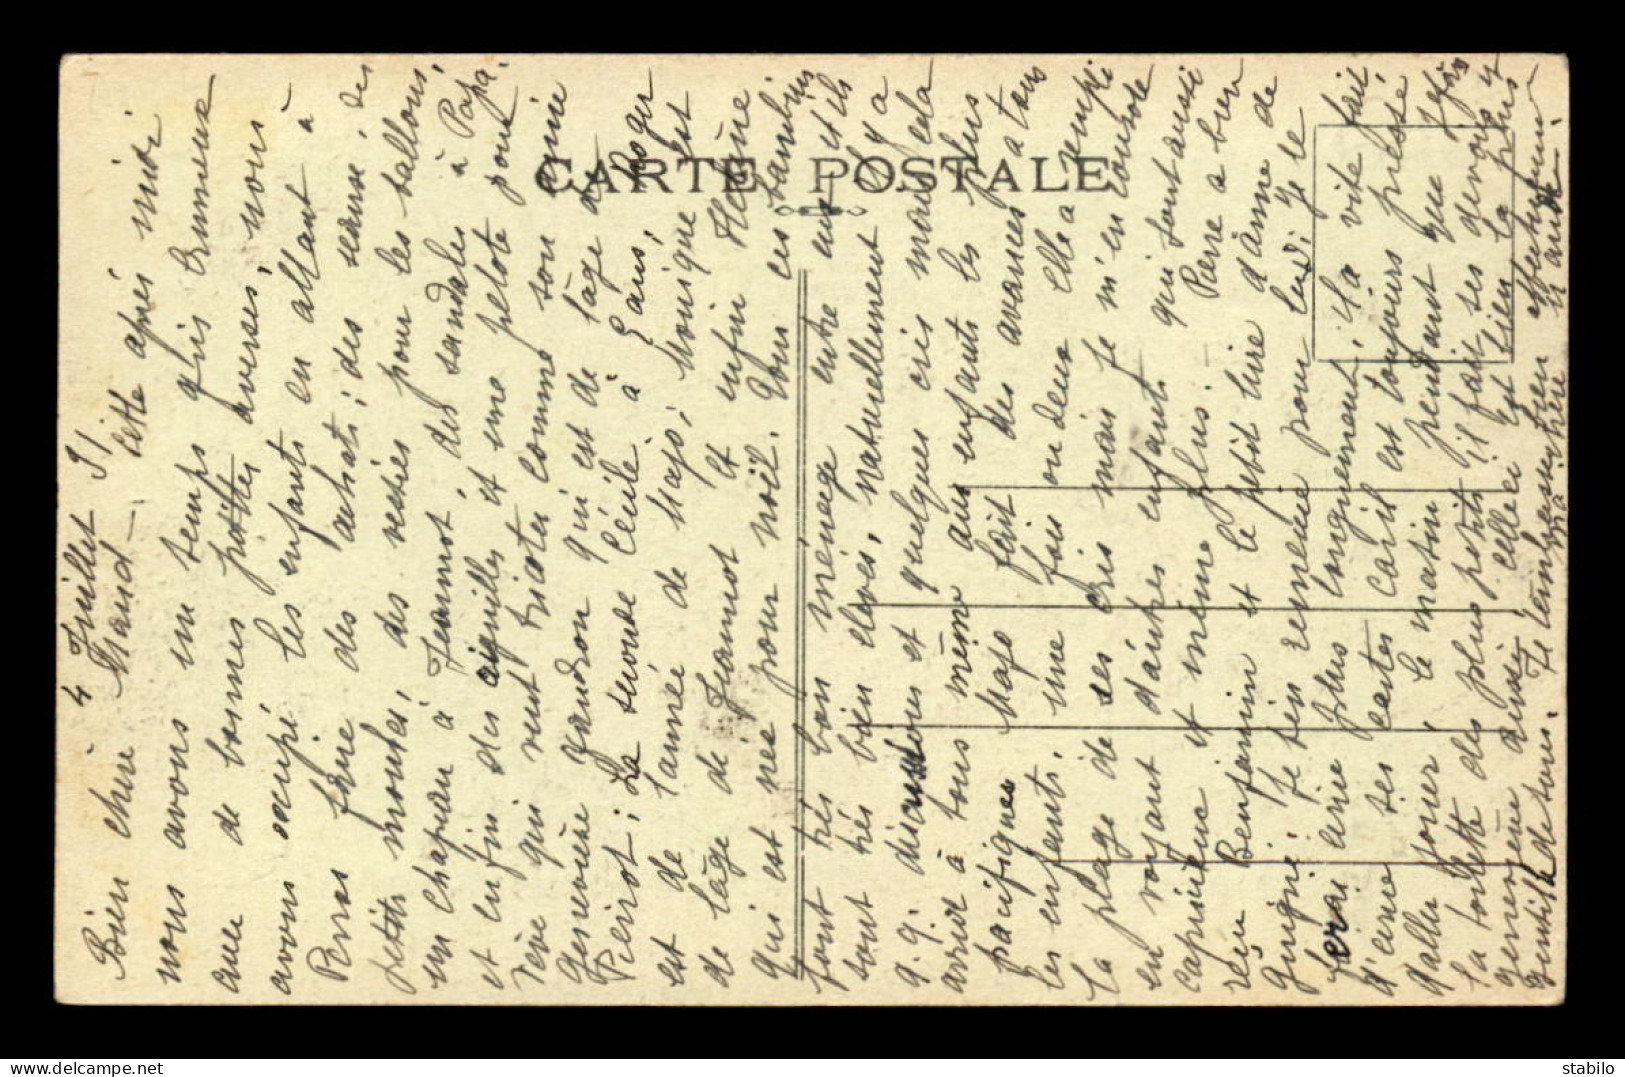 4 Juillet 31
Bien chère Maud - Cette après midi
nous avons un temps gris brumeux
avec de bonnes petites averses, nous
avons occupé les enfants en allant à
Perros faire des achats ; des seaux, des
petits moules, des resies pour les ballons,
un chapeau à Jeannot, des sandales à Papa.
et enfin des aiguilles et une pelote pour
Neve qui veut tricoter comme son amie
Geneviève Gendron qui est de l'âge de Roger
Pierrot ; La seconde Cécile à 6 ans,
est de l'année de Majo, Monique est
de l'âge de Jeannot et enfin Hélène
qui est née pour noël. Tous ces bambins
font très bon ménage entre eux et ils
sont très bien élevés, naturellement il y a
q.q. discussions et quelques cris mais cela
arrive à tous même aux enfants les plus
pacifiques. Majo fait des avances à tous
les enfants, une fois ou deux elle a rempli
la plage de ses cris mais je m'en console
en voyant d'autres enfants qui sont aussi
capricieux et même plus. - Pierre a bien
reçu Benjamin et le petit livre d'Anne de
Guigné ; je t'en remercie pour lui, je te
ferai écrire plus longuement, il a vite fait
d'écrire ses cartes car il est toujours pressé
d'aller jouer, le matin pendant que je fais
la toilette des plus petits, il fait ses devoirs &
Geneviève aussi, celle ci est bien la plus
gentille de tous. Je t'embrasse bien affectueusement
ma chère
CARTE POSTALE
stabilo
delcampe.net